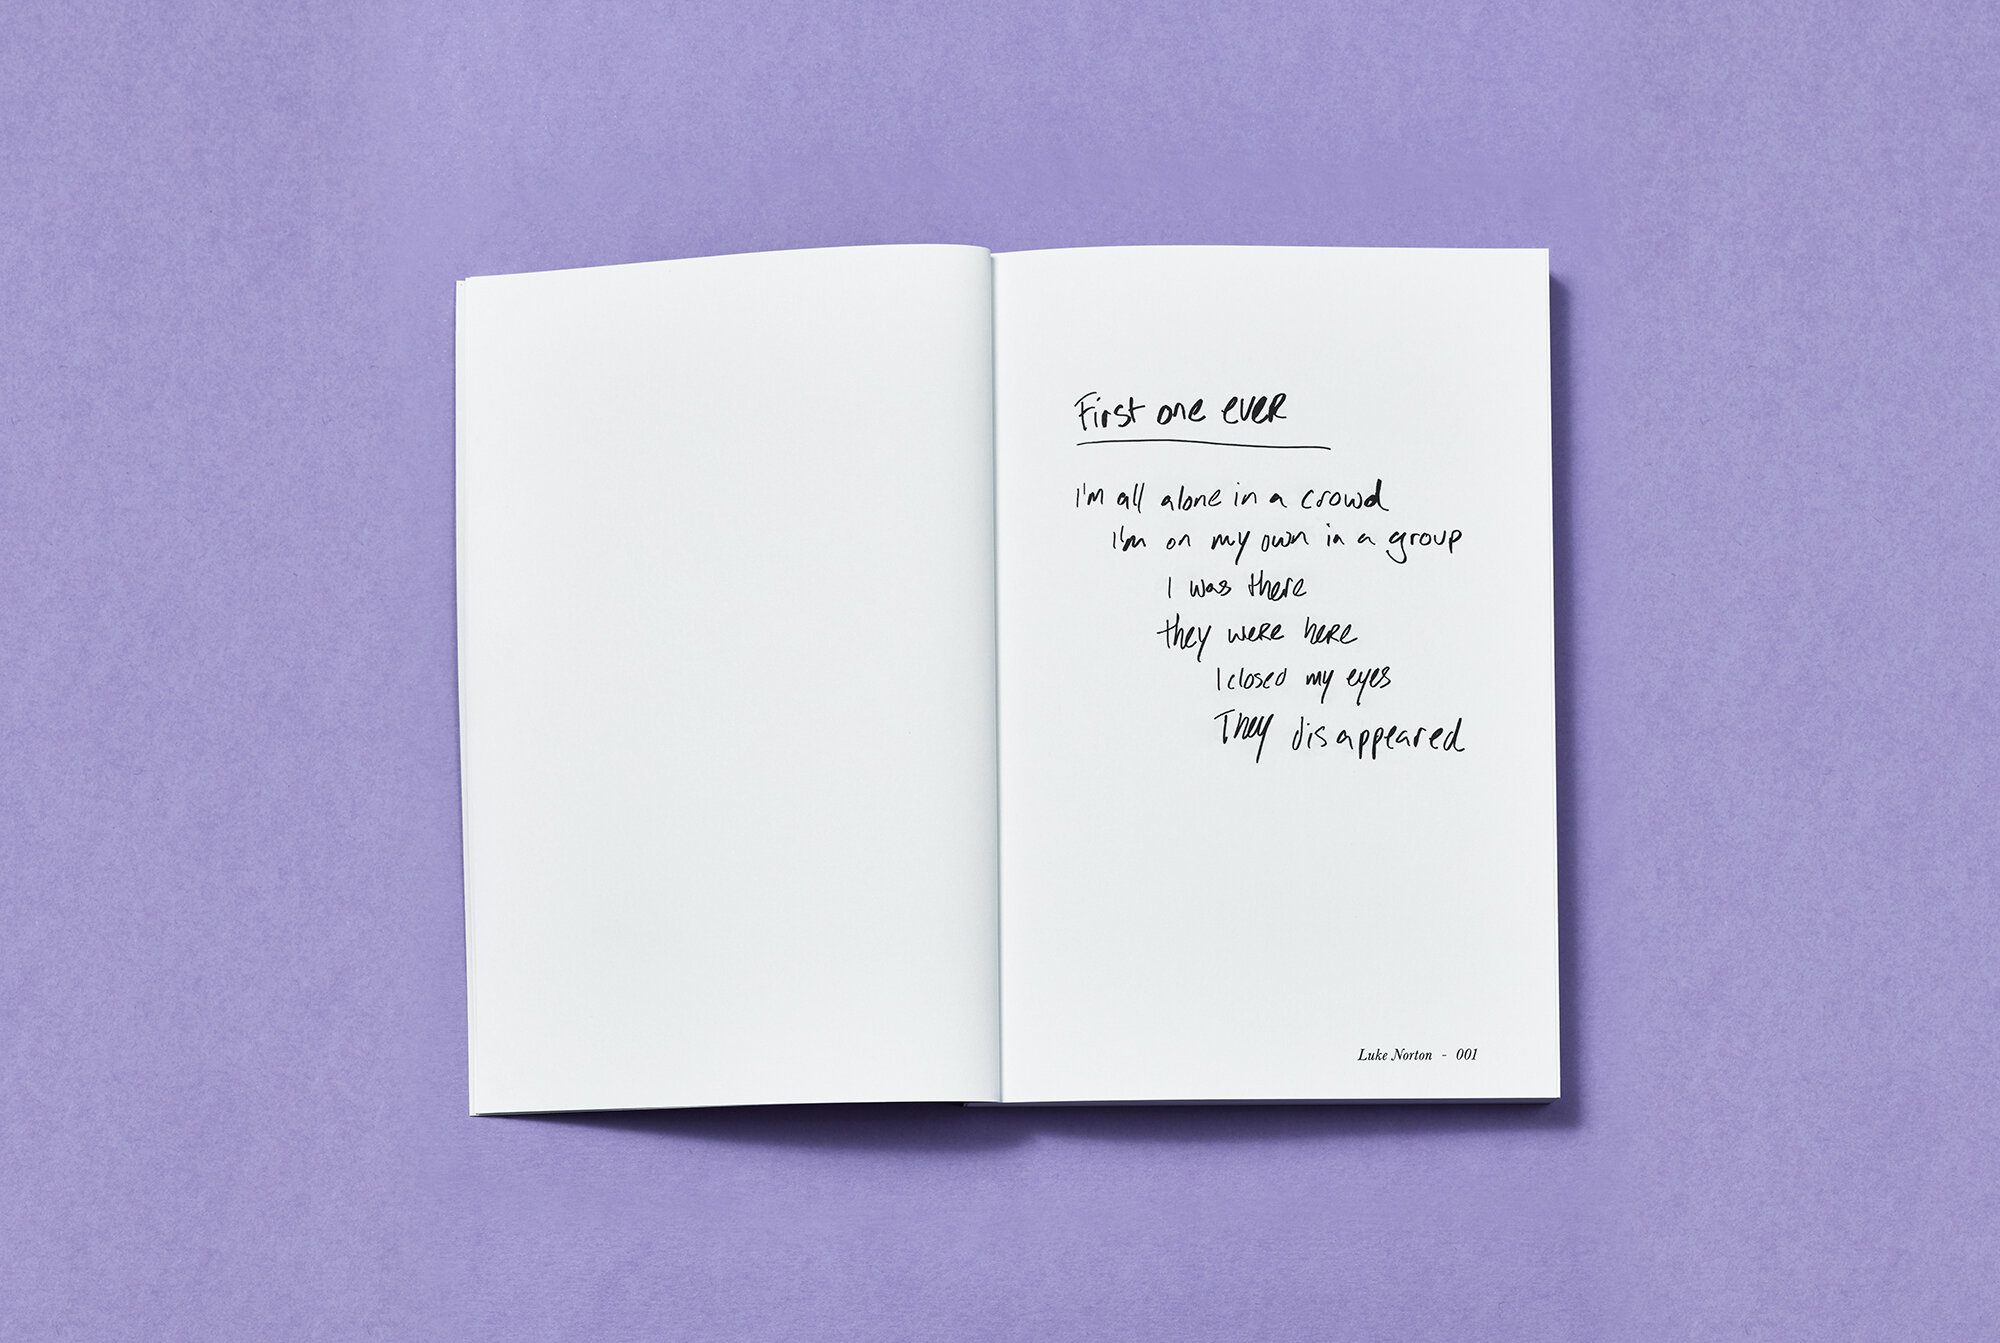 First one ever
I'm all alone in a crowd
I'm on my own in a group
I was there
they were here
I closed my eyes
They disappeared
Luke Norton - 001